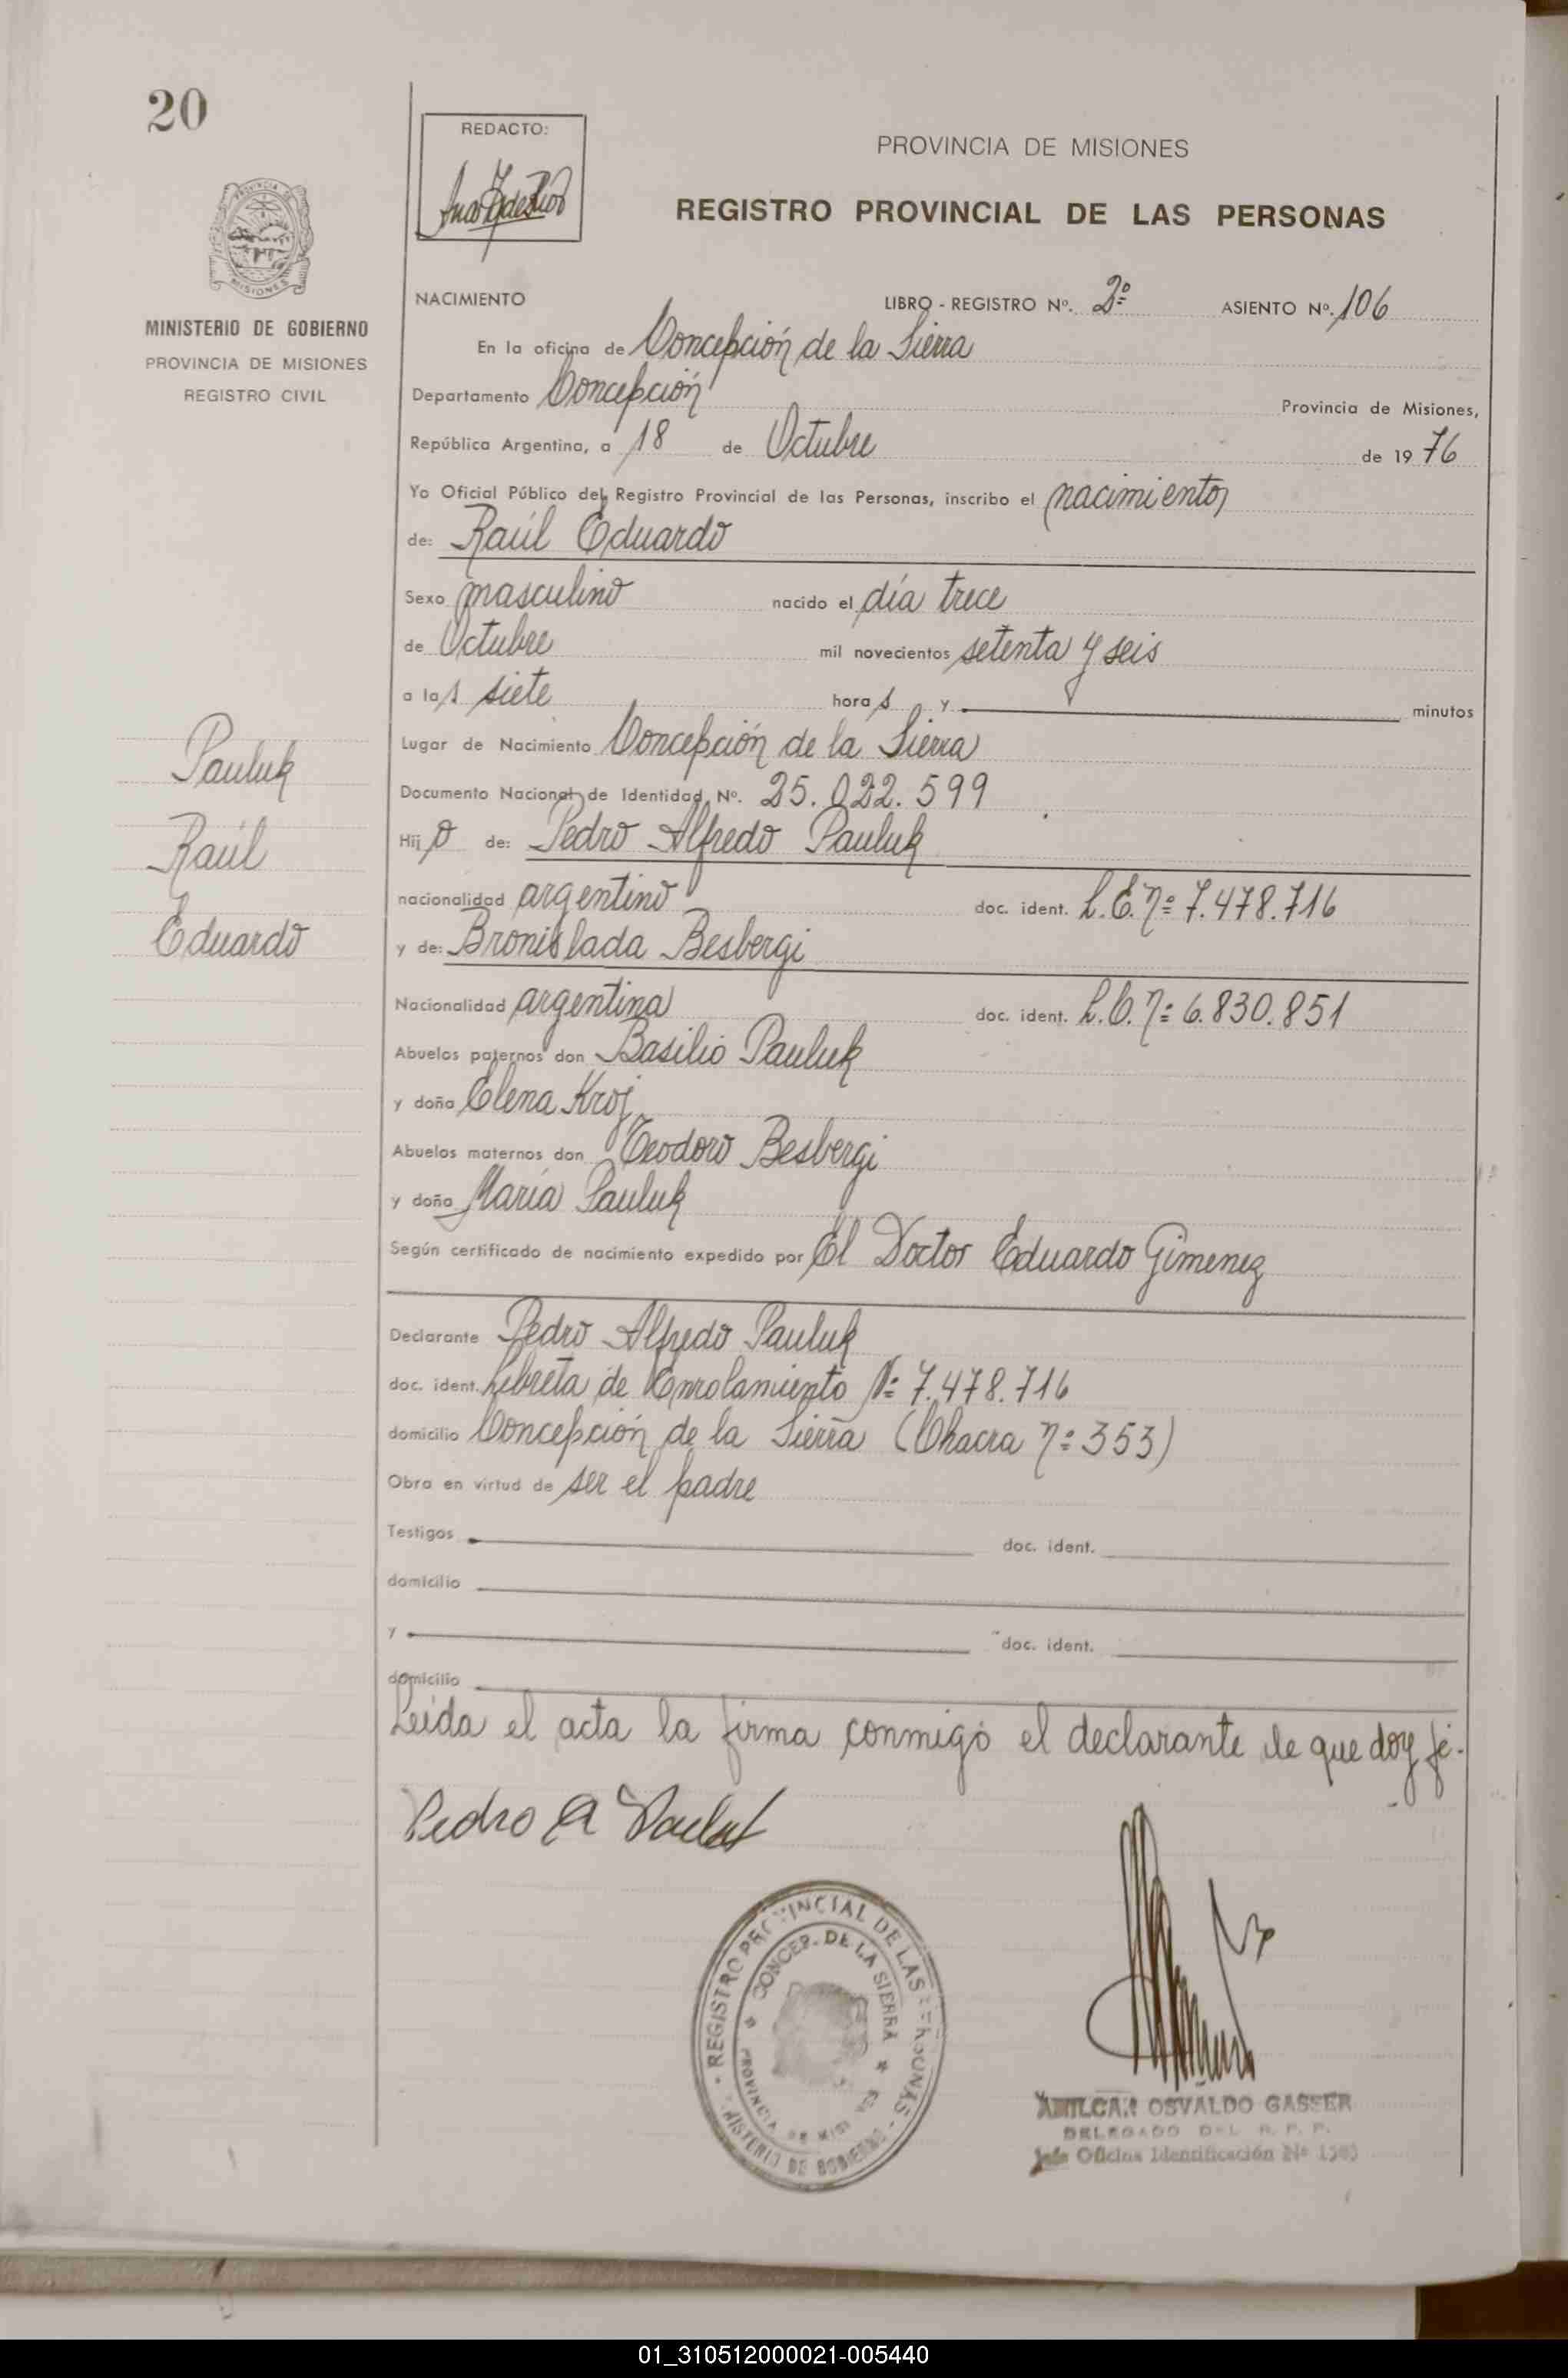 20
REDACTO:
PROVINCIA DE MISIONES
REGISTRO PROVINCIAL DE LAS PERSONAS
MINISTERIO DE GOBIERNO
PROVINCIA DE MISIONES
REGISTRO CIVIL
NACIMIENTO LIBRO - REGISTRO Nº. 2º ASIENTO Nº. 106
En la oficina de Concepción de la Sierra
Departamento Concepción Provincia de Misiones,
República Argentina, a 18 de Octubre de 1976
Yo Oficial Público del Registro Provincial de las Personas, inscribo el nacimiento
de: Raúl Eduardo
Sexo masculino nacido el día trece
de Octubre mil novecientos setenta y seis
a las siete horas y minutos
Lugar de Nacimiento Concepción de la Sierra
Documento Nacional de Identidad Nº. 25.022.599
Hijo de: Pedro Alfredo Pauluk
nacionalidad argentino doc. ident. L.E. Nº 7.478.716
y de: Bronislada Besbergi
Nacionalidad argentina doc. ident. L.C. Nº 6.830.851
Abuelos paternos don Basilio Pauluk
y doña Elena Kroj
Abuelos maternos don Teodoro Besbergi
y doña María Pauluk
Según certificado de nacimiento expedido por El Doctor Eduardo Gimenez
Declarante Pedro Alfredo Pauluk
doc. ident. Libreta de Enrolamiento Nº 7.478.716
domicilio Concepción de la Sierra (Chacra Nº 353)
Obra en virtud de ser el padre
Testigos doc. ident.
domicilio
y doc. ident.
domicilio
Leída el acta la firma conmigo el declarante de que doy fé.
Pauluk
Raúl
Eduardo
Pedro A Pauluk
REGISTRO PROVINCIAL DE LAS PERSONAS
MINISTERIO DE GOBIERNO
CONCEP. DE LA SIERRA
PROVINCIA DE MISIONES
AMILCAR OSVALDO GASSER
DELEGADO DEL R. P. P.
Jefe Oficina Identificación Nº
01_310512000021-005440